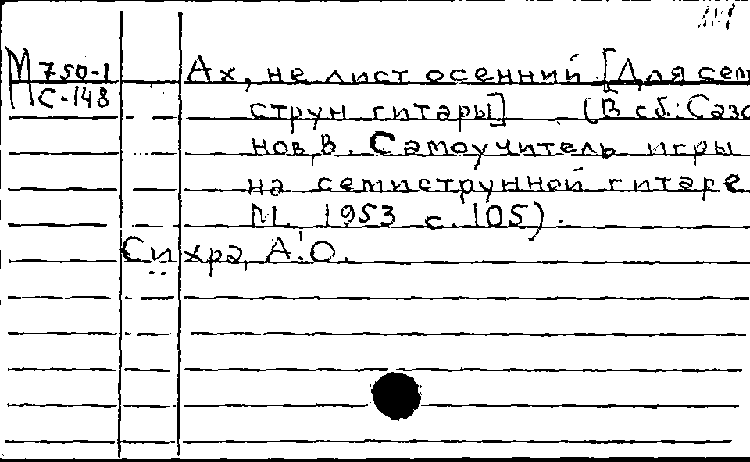 М 750-1
С-148
Ах, не лист осенний [Для сем
струн гитары] (В сб.: Сазо
нов, В. Самоучитель игры
на семиструнной гитаре
М., 1953 с. 105).
Сихра, А.О.